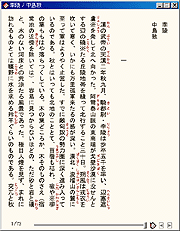 李陵 / 中島敦
李陵
中島敦
一
漢の武帝の天漢二年秋九月、騎都尉・李陵は歩卒五千を率い、辺塞遮
虜鄣を発して北へ向かった。阿爾泰山脈の東南端が戈壁沙漠に没せんと
する辺の磽确たる丘陵地帯を縫って北行すること三十日。朔風は戎衣を
吹いて寒く、いかにも万里孤軍来たるの感が深い。漠北・浚稽山の麓に
至って軍はようやく止営した。すでに敵匈奴の勢力圏に深く進み入って
いるのである。秋とはいっても北地のこととて、苜蓿も枯れ、楡や檉柳
の葉ももはや落ちつくしている。木の葉どころか、木そのものさえ（宿
営地の近傍を除いては）、容易に見つからないほどの、ただ砂と岩と磧
と、水のない河床との荒涼たる風景であった。極目人煙を見ず、まれに
訪れるものとては曠野に水を求める羚羊ぐらいのものである。突兀と秋